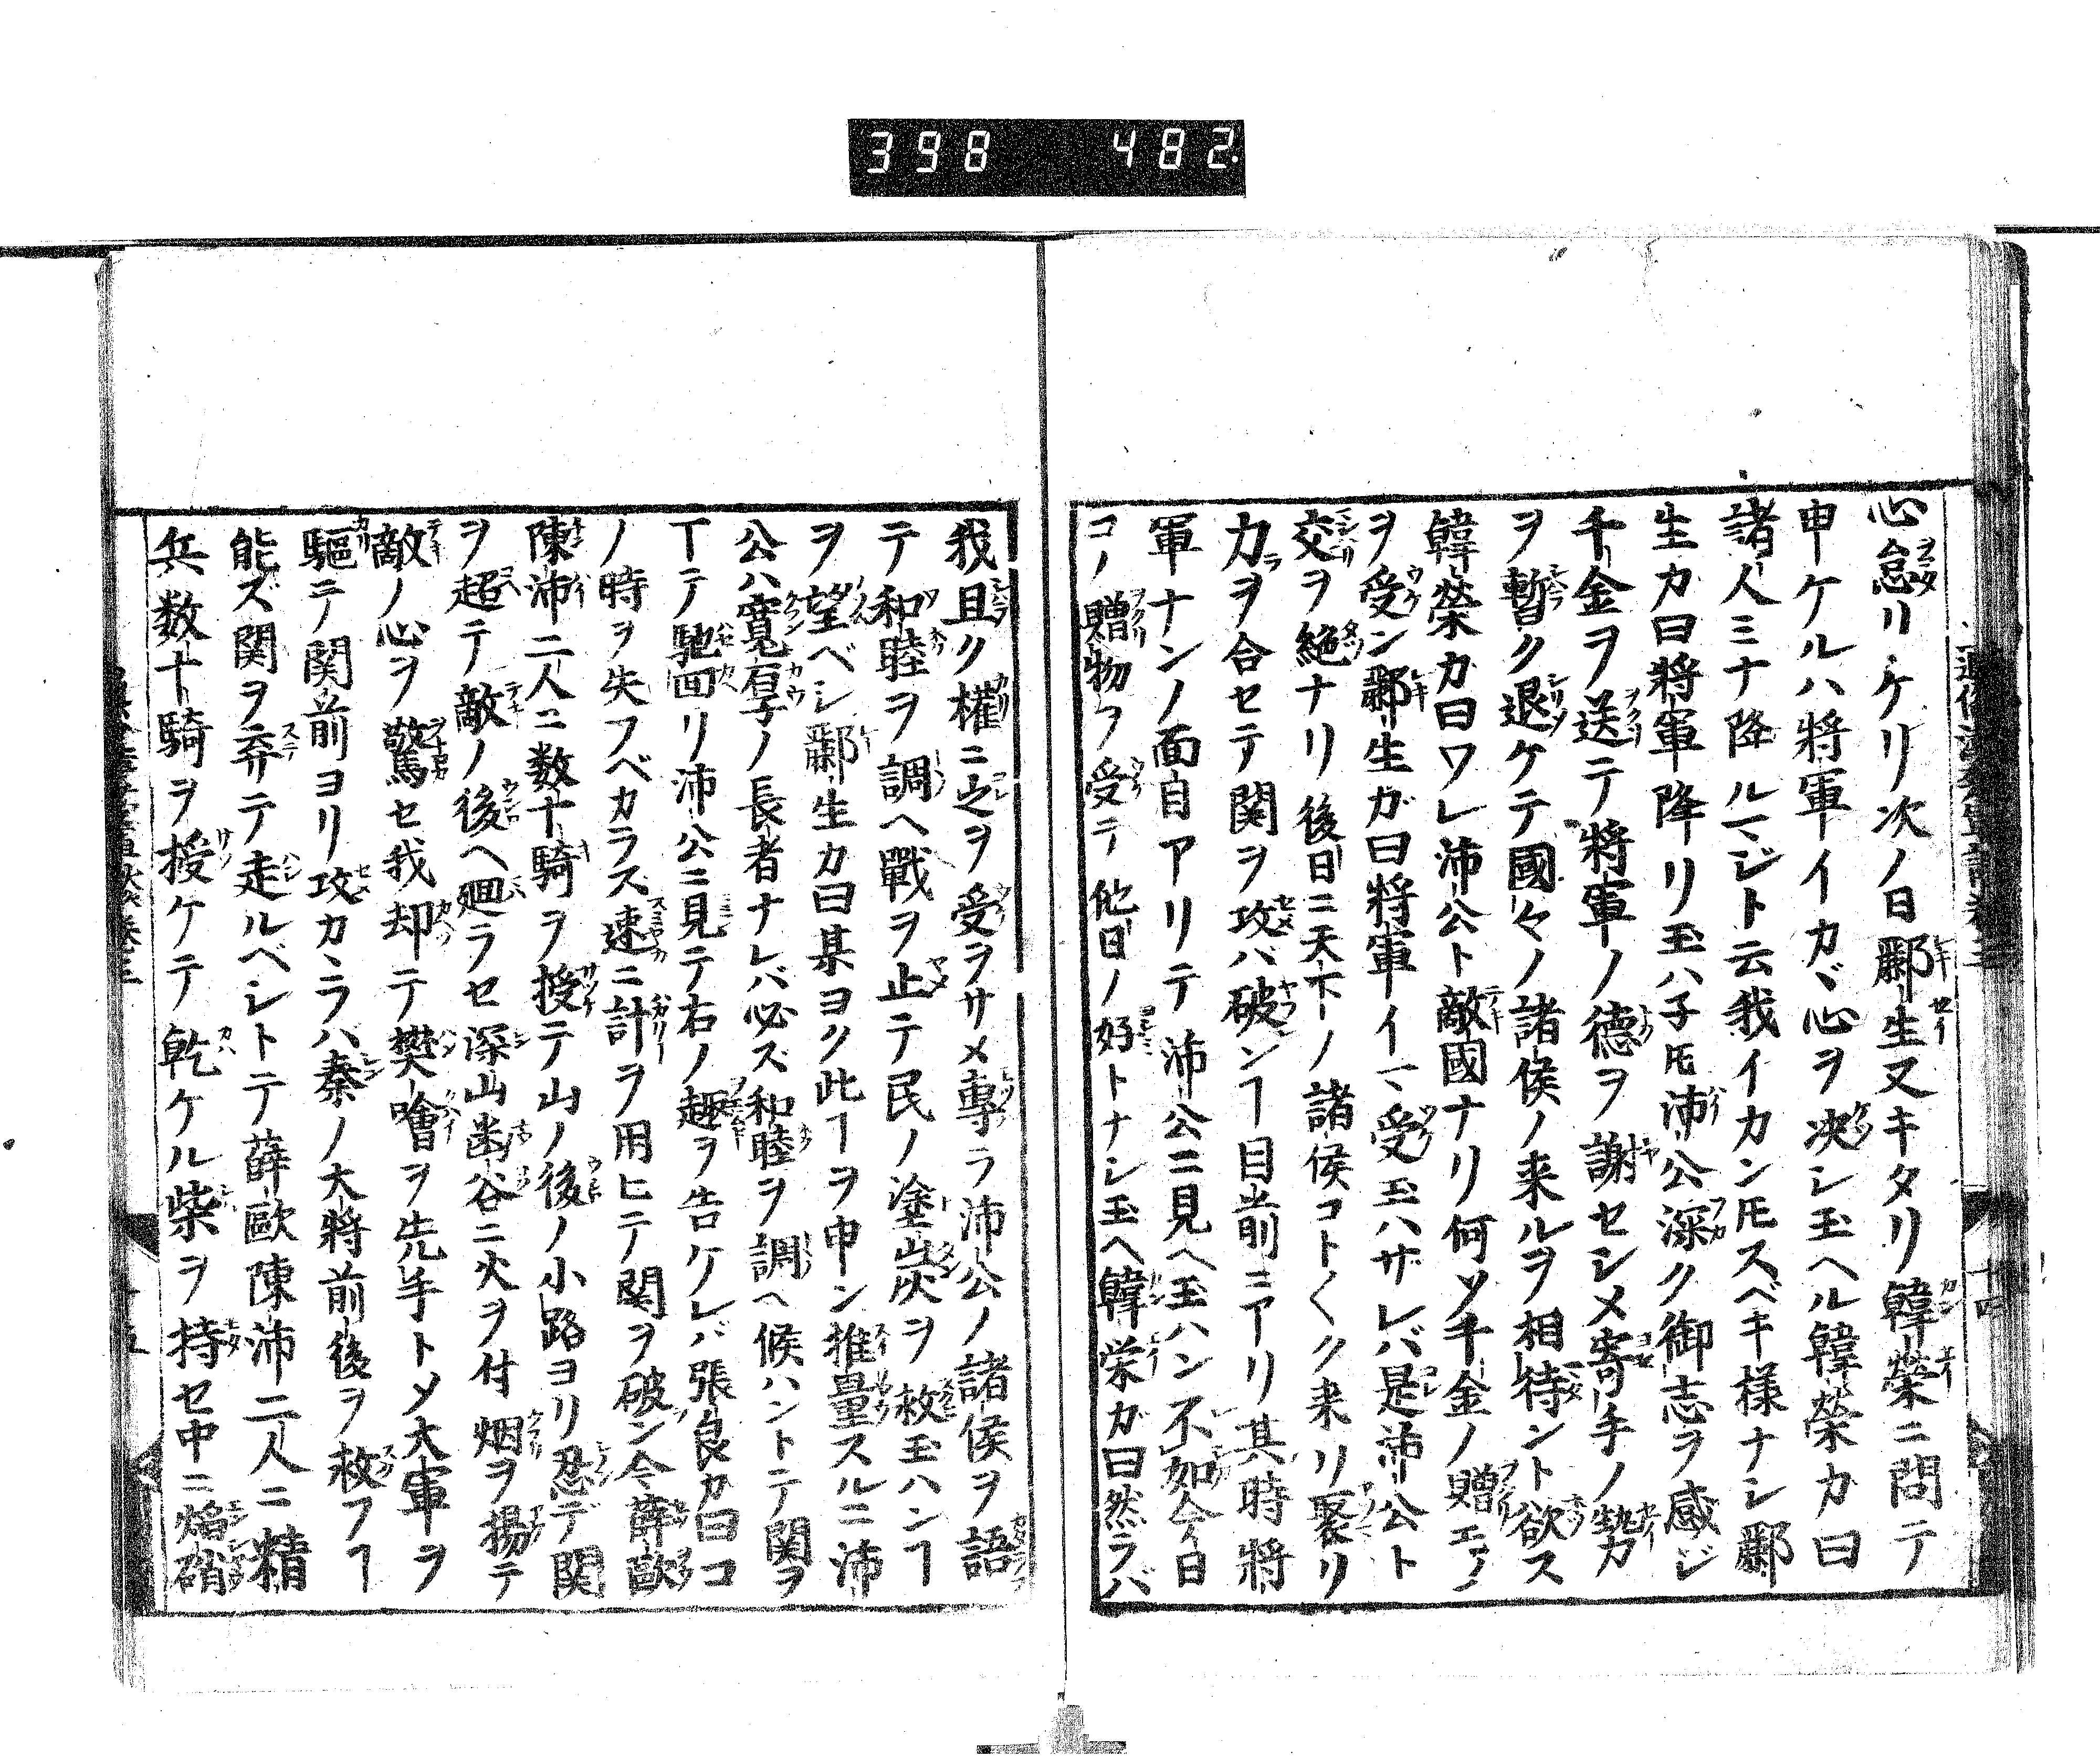 398 482
心怠リケリ次ノ日酈生又キタリ韓榮ニ問テ
申ケルハ將軍イカヾ心ヲ决シ玉ヘル韓榮カ曰
諸人ミナ降ルマジト云我イカン𪜈スベキ様ナシ酈
生カ曰將軍降リ玉ハ子𪜈沛公深ク御志ヲ感ジ
千金ヲ送テ將軍ノ德ヲ謝セシメ寄手ノ勢力
ヲ暫ク退ケテ國々ノ諸侯ノ来ルヲ相待ント欲ス
韓榮カ曰ワレ沛公ト敵國ナリ何ソ千金ノ贈モノ
ヲ受ン酈生ガ曰將軍イマ受玉ハザレバ是沛公ト
交ヲ絶ナリ後日ニ天下ノ諸侯コト〱ク来リ聚リ
力ヲ合セテ関ヲ攻バ破ンヿ目前ニアリ其時將
軍ナンノ面目アリテ沛公ニ見ヘ玉ハン不如今日
コノ贈物ヲ受テ他日ノ好トナシ玉ヘ韓栄ガ曰然ラバ
我且ク權ニ之ヲ受ヲサメ專ラ沛公ノ諸侯ヲ語
テ和睦ヲ調ヘ戰ヲ止テ民ノ塗炭ヲ救玉ハンヿ
ヲ望ベシ酈生カ曰某ヨク此ヿヲ申ン推量スルニ沛
公ハ寛宥ノ長者ナレバ必ズ和睦ヲ調ヘ候ハントテ関ヲ
下テ馳回リ沛公ニ見テ右ノ趣ヲ告ケレバ張良カ曰コ
ノ時ヲ失フベカラス速ニ計ヲ用ヒテ関ヲ破ン今薛歐
陳沛二人ニ数十騎ヲ授テ山ノ後ノ小路ヨリ忍デ関
ヲ超テ敵ノ後ヘ廻ラセ深山幽谷ニ火ヲ付烟ヲ揚テ
敵ノ心ヲ驚セ我却テ樊噲ヲ先手トメ大軍ヲ
驅テ関前ヨリ攻カヽラハ秦ノ大將前後ヲ救フヿ
能ズ関ヲ弃テ走ルベシトテ薛歐陳沛二人ニ精
兵数十騎ヲ授ケテ乾ケル柴ヲ持セ中ニ焔硝